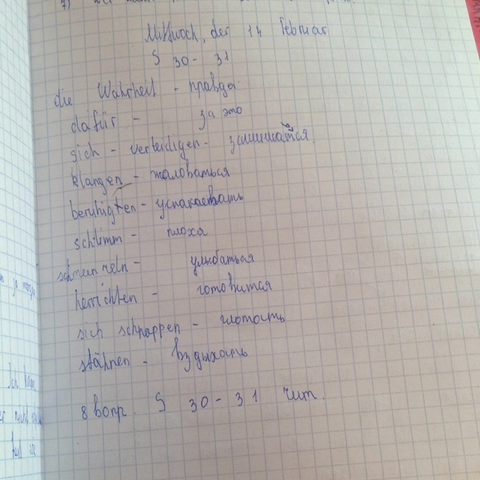 Mittwoch, der 14 Februar
S 30 - 31
die Wahrheit - правда
dafür - за это
sich - verteidigen - защищатся
klangen - жаловаться
beruhigten - успакаевать
schlimm - плоха
schmunzeln - улыбаться
herrichten - готовится
sich schnappen - глотость
stähnen - вздыхать
8 вопр. S 30 - 31 чит.